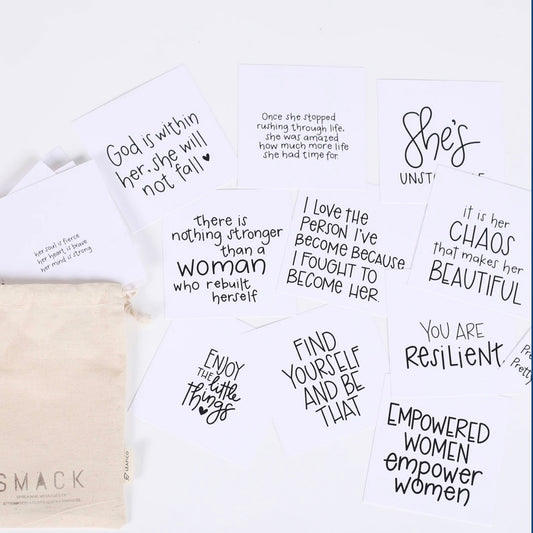 God is within
her, she will
not fall
Once she stopped
rushing through life,
she was amazed
how much more life
she had time for.
She's
her soul is fierce
her heart is brave
her mind is strong
there is
nothing stronger
than a
woman
who rebuilt
herself
I LOVE THE
PERSON I'VE
BECOME BECAUSE
I FOUGHT TO
BECOME HER.
it is her
CHAOS
that makes her
BEAUTIFUL
ENJOY
THE little
things
FIND
YOURSELF
AND BE
THAT
YOU ARE
RESILIENT
EMPOWERED
WOMEN
empower
women
SMACK